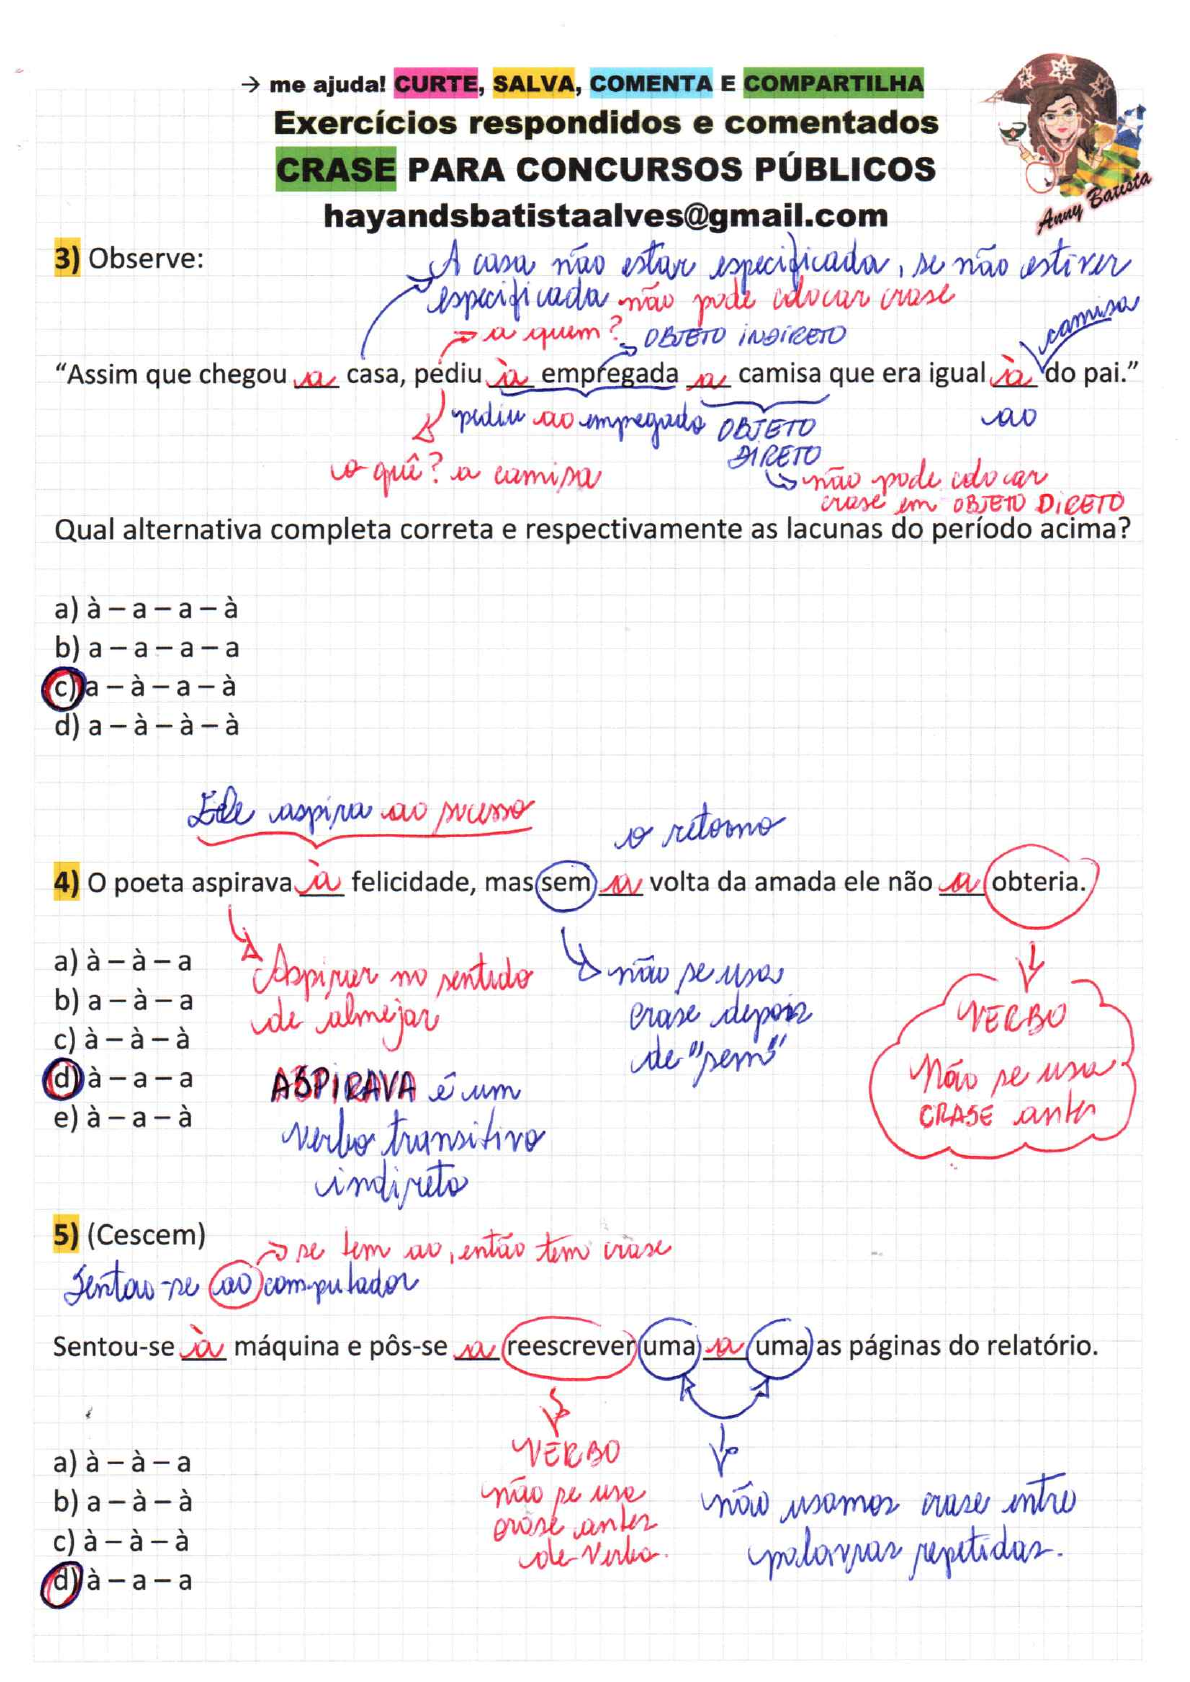 → me ajuda! CURTE, SALVA, COMENTA E COMPARTILHA
Exercícios respondidos e comentados
CRASE PARA CONCURSOS PÚBLICOS
hayandsbatistaalves@gmail.com
Anny Batista
3) Observe:
A casa não estar especificada, se não estiver
especificada não pode colocar crase
→ a quem? → OBJETO INDIRETO
camisa
“Assim que chegou a casa, pediu à empregada a camisa que era igual à do pai.”
pediu ao empregado OBJETO DIRETO
ao
o quê? a camisa
→ não pode colocar
crase em OBJETO DIRETO
Qual alternativa completa correta e respectivamente as lacunas do período acima?
a) à – a – a – à
b) a – a – a – a
c) a – à – a – à
d) a – à – à – à
Ele aspira ao sucesso
o retorno
4) O poeta aspirava à felicidade, mas sem a volta da amada ele não a obteria.
a) à – à – a
b) a – à – a
c) à – à – à
d) à – a – a
e) à – a – à
Aspirar no sentido
de almejar
ASPIRAVA é um
verbo transitivo
indireto
não se usa
crase depois
de "sem"
VERBO
Não se usa
CRASE antes
5) (Cescem)
→ se tem ao, então tem crase
Sentou-se ao computador
Sentou-se à máquina e pôs-se a reescrever uma a uma as páginas do relatório.
a) à – à – a
b) a – à – à
c) à – à – à
d) à – a – a
VERBO
não se usa
crase antes
de verbo.
não usamos crase entre
palavras repetidas.